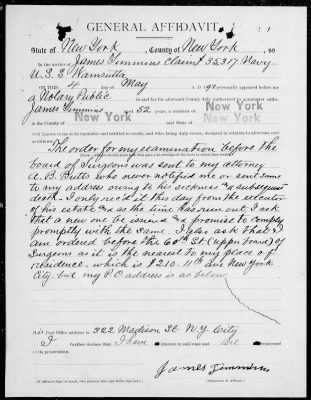 GENERAL AFFIDAVIT.
State of New York, County of New York, ss
In the matter of James Timmins Claim 35317 Navy
U.S.S Wamsutta
ON THIS 4 day of May A. D. 190 personally appeared before me
a Notary Public in and for the aforesaid County duly authorized to administer oaths
James Timmins aged 52 years, a resident of New York
in the County of New York and State of New York
well known to me to be reputable and entitled to credit, and who, being duly sworn, declared in relation to aforesaid case as follows:
The order for my examination before the
board of Surgeons was sent to my attorney
A. B. Butts who never notified me or sent same
to my address owing to his sickness and subsequent
death. I only rec'd it this day from the executor
of his estate and as the time has run out I ask
that a new one be issued and promise to comply
promptly with the same. I also ask that I
am ordered before the 60th St (upper board) of
Surgeons as it is the nearest to my place of
residence, which is #210. 11th ave New York
City, but my P.O address is as below
His Post Office address is 322 Madison St N.Y. City
I further declare that I have interest in said case and
prosecution.
James Timmins
(If Affiant signs by mark, two persons who can write sign here.) (Signature of Affiant.)